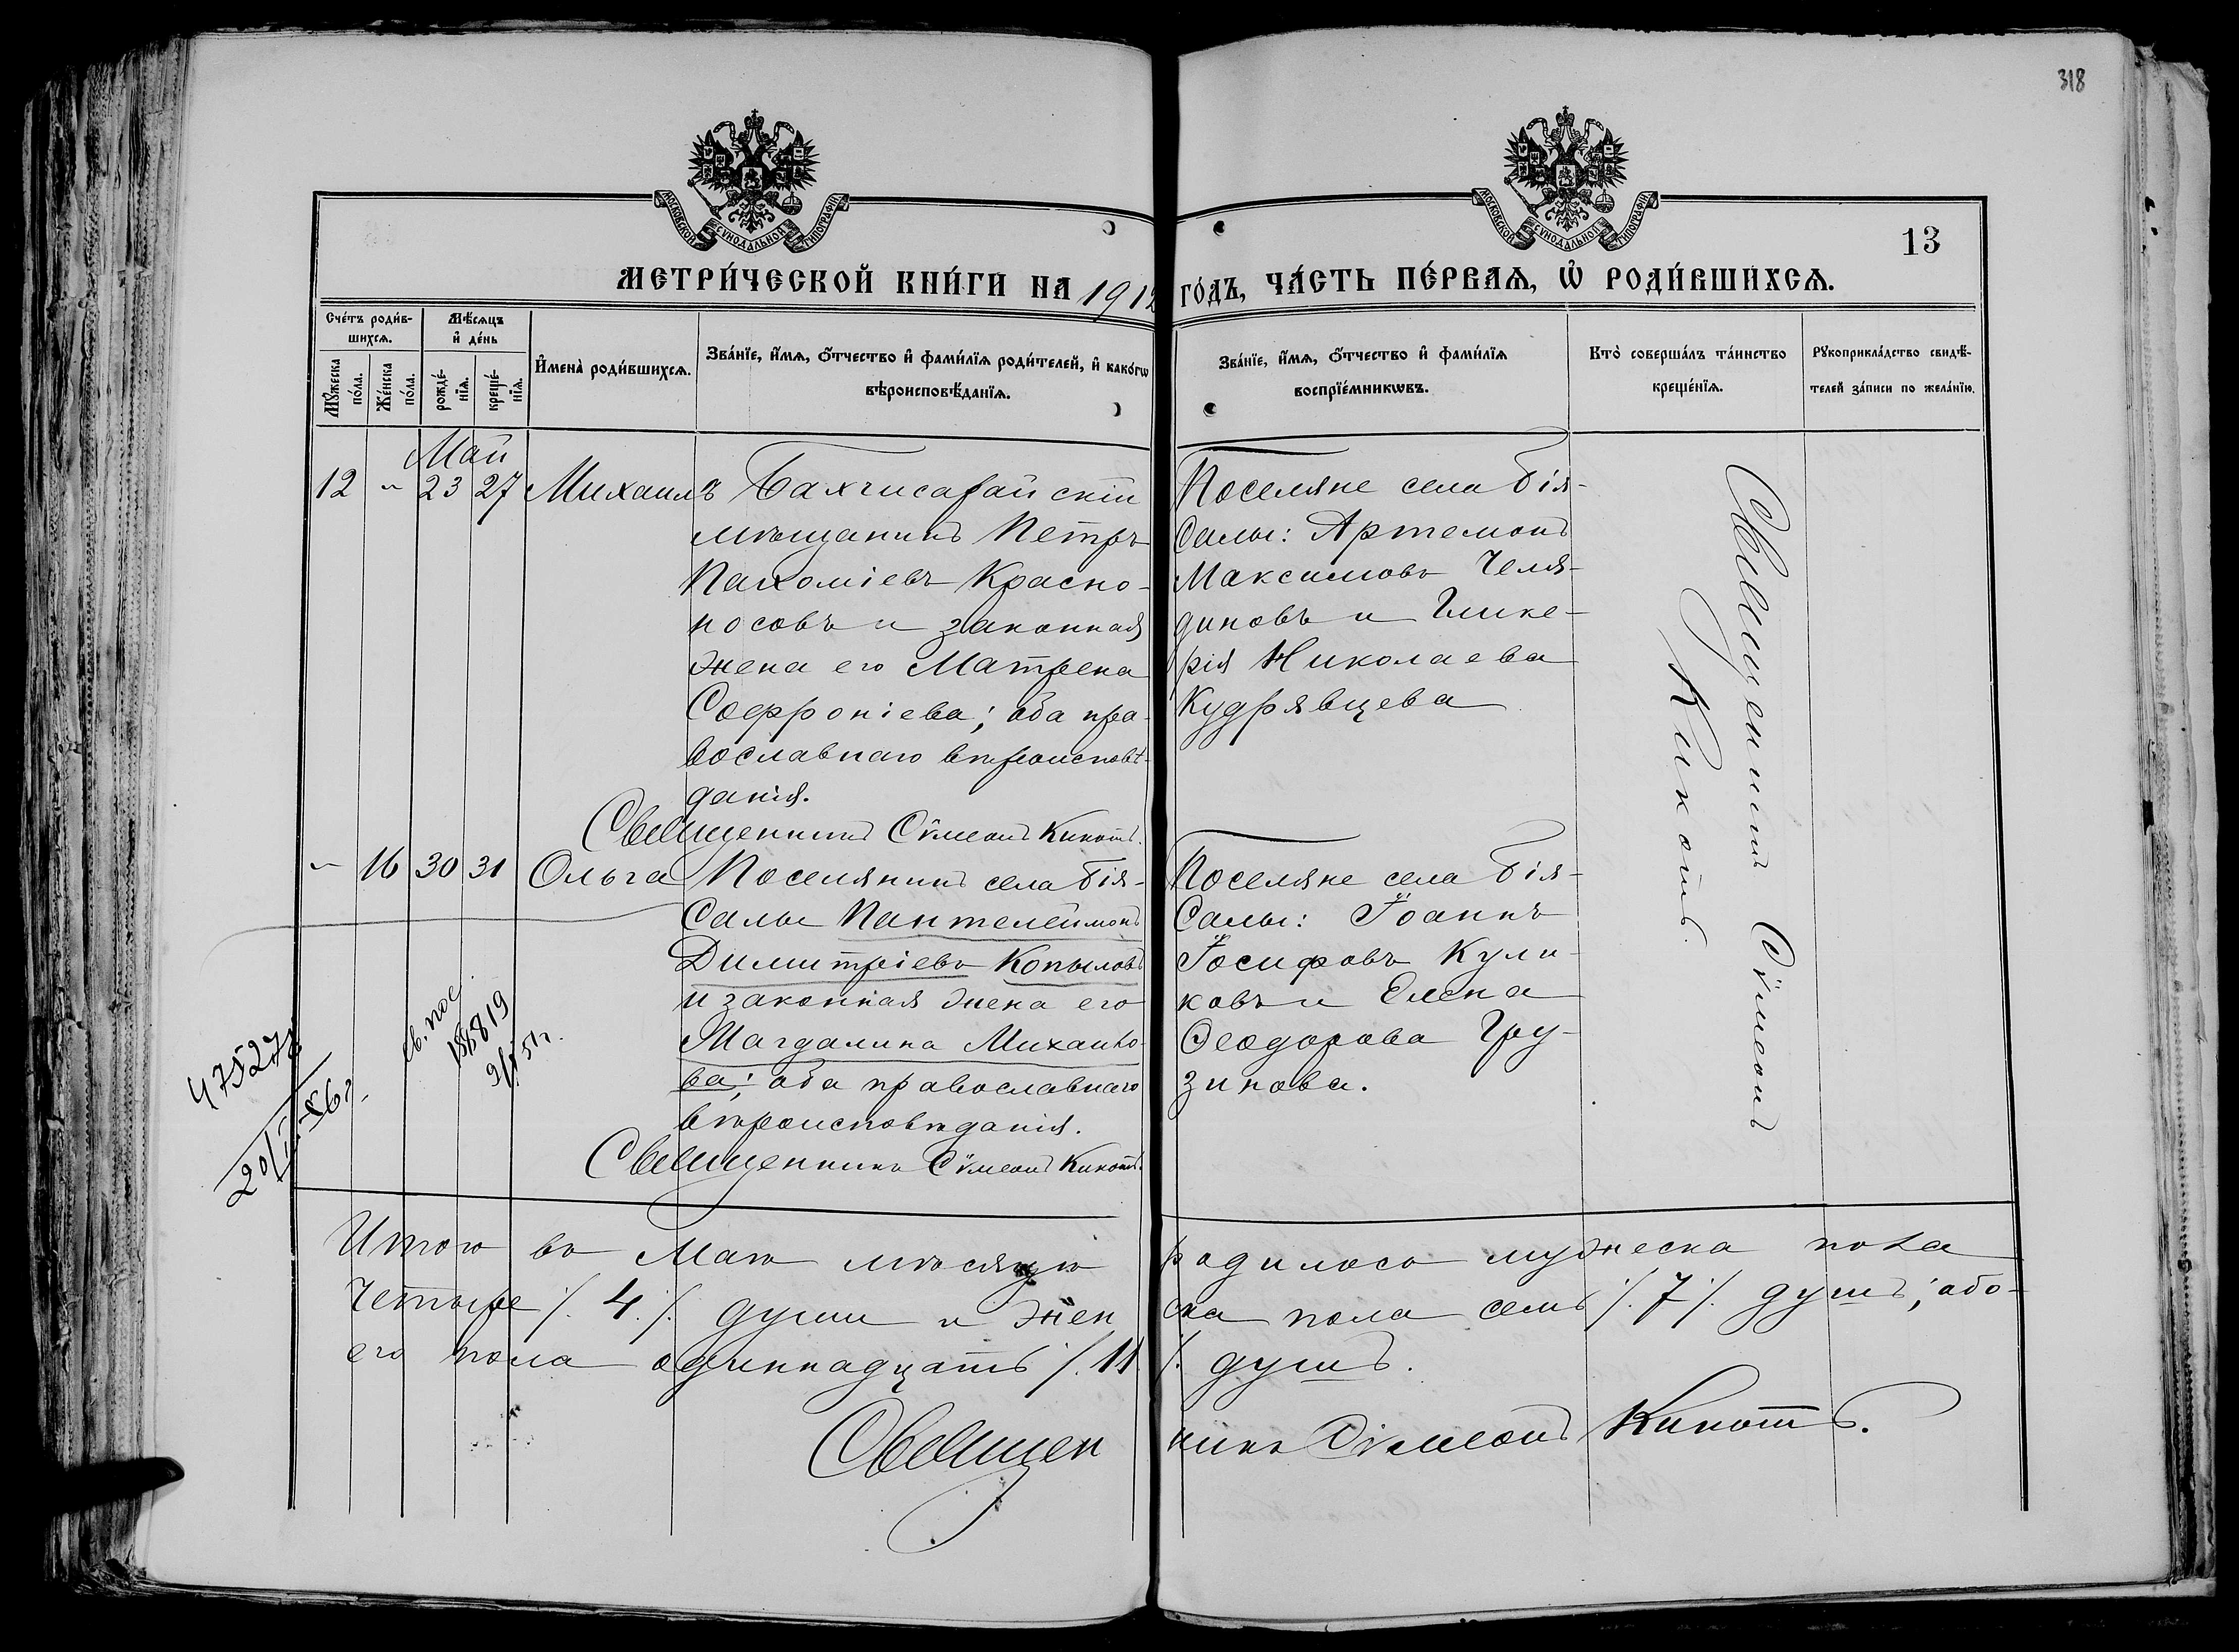 318
МОСКОВСКОЙ СУНОДАЛЬНОЙ ТИПОГРАФІИ
МОСКОВСКОЙ СУНОДАЛЬНОЙ ТИПОГРАФІИ
13
МЕТРИ́ЧЕСКОЙ КНИ́ГИ НА 1912 ГО́ДЪ, ЧА́СТЬ ПЕ́РВАѦ, Ѡ҆ РОДИ́ВШИХСѦ.
Сче́тъ роди́в-
шихсѧ.
Мꙋ́жеска по́ла.
Же́нска по́ла.
Мѣ́сѧцъ
и҆ де́нь
рожде́-
нїѧ.
креще́-
нїѧ.
И҆мена̀ роди́вшихсѧ.
Зва́нїе, и҆́мѧ, ѻ҆́тчество и҆ фами́лїѧ роди́телей, и҆ како́гѡ
вѣроисповѣ́данїѧ.
Зва́нїе, и҆́мѧ, ѻ҆́тчество и҆ фами́лїѧ
воспрїе́мникѡвъ.
Кто̀ соверша́лъ та́инство
креще́нїѧ.
Рꙋкоприкла́дство свидѣ́-
телей за́писи по жела́нїю.
Май
12 " 23 27 Михаилъ
Бахчисарайскій
мѣщанинъ Петръ
Пахоміевъ Красно-
носовъ и законная
жена его Матрена
Софроніева; оба пра-
вославнаго вѣроисповѣ-
данія.
Священникъ Сѵмеонъ Кикотъ.
Поселяне села Бія-
Салы: Артемонъ
Максимовъ Челя-
диновъ и Глике-
рія Николаева
Кудрявцева
Священникъ Сѵмеонъ
Кикотъ.
" 16 30 31 Ольга
Поселянинъ села Бія-
Салы Пантелеимонъ
Димитріевъ Копыловъ
и законная жена его
Магдалина Михаило-
ва; оба православнаго
вѣроисповѣданія.
Священникъ Сѵмеонъ Кикотъ.
Поселяне села Бія-
Салы: Іоаннъ
Іосифовъ Кули-
ковъ и Елена
Ѳеодорова Гру-
зинова.
св. пос.
9/I 51г.
Итого въ Маѣ мѣсяцѣ родилось мужеска пола
четыре /. 4 ./ души и жен ска пола семь /. 7 /. душъ; обо-
его пола одиннадцать /. 11 /. душъ.
Священ никъ Сѵмеонъ Кикотъ.